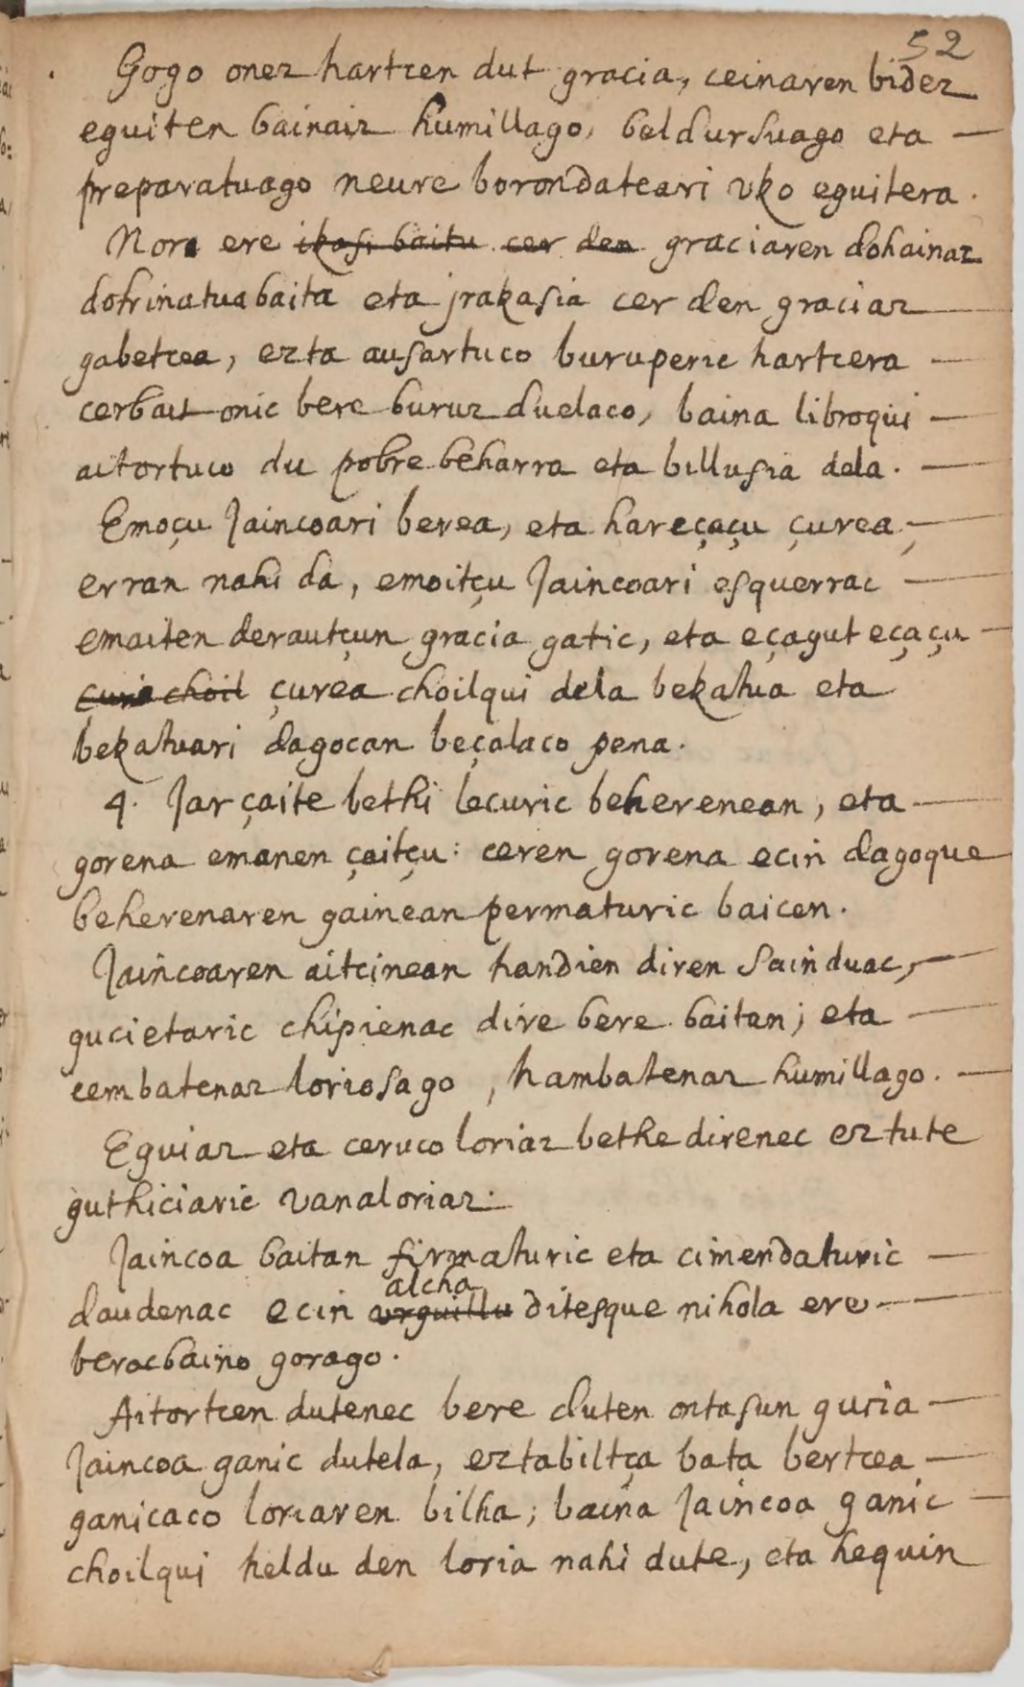 52
Gogo onez hartcen dut gracia, ceinaren bidez
eguiten bainaiz humillago, beldursuago eta —
preparatuago neure borondateari uko eguitera.
Nora ere ikasi baitu cer den graciaren dohainaz
dotrinatua baita eta jrakasia cer den graciaz
gabetcea, ezta ausartuco buruperic hartcera —
cerbait onic bere buruz duelaco, baina libroqui —
aitortuco du pobre beharra eta billusia dela. —
Emoçu Jaincoari berea, eta har eçaçu çurea, —
erran nahi da, emoitçu Jaincoari esquerrac —
emaiten derautçun gracia gatic, eta eçagut eçaçu —
curia choil çurea choilqui dela bekatua eta
bekatuari dagocan beçalaco pena.
4. Jar çaite bethi lecuric beherenean, eta —
gorena emanen çaitçu: ceren gorena ecin dagoque
beherenaren gainean permaturic baicen.
Jaincoaren aitcinean handien diren Sainduac, —
gucietaric chipienac dire bere baitan; eta —
cembatenaz loriosago, hambatenaz humillago. —
Eguiaz eta ceruco loriaz bethe direnec eztute
guthiciaric vanaloriaz.
Jaincoa baitan firmaturic eta cimendaturic —
alcha
daudenac ecin urguillu ditesque nihola ere —
berac baino gorago.
Aitortcen dutenec bere duten ontasun gucia —
Jaincoa ganic dutela, eztabiltça bata bertcea —
ganicaco loriaren bilha; baina Jaincoa ganic —
choilqui heldu den loria nahi dute, eta hequin